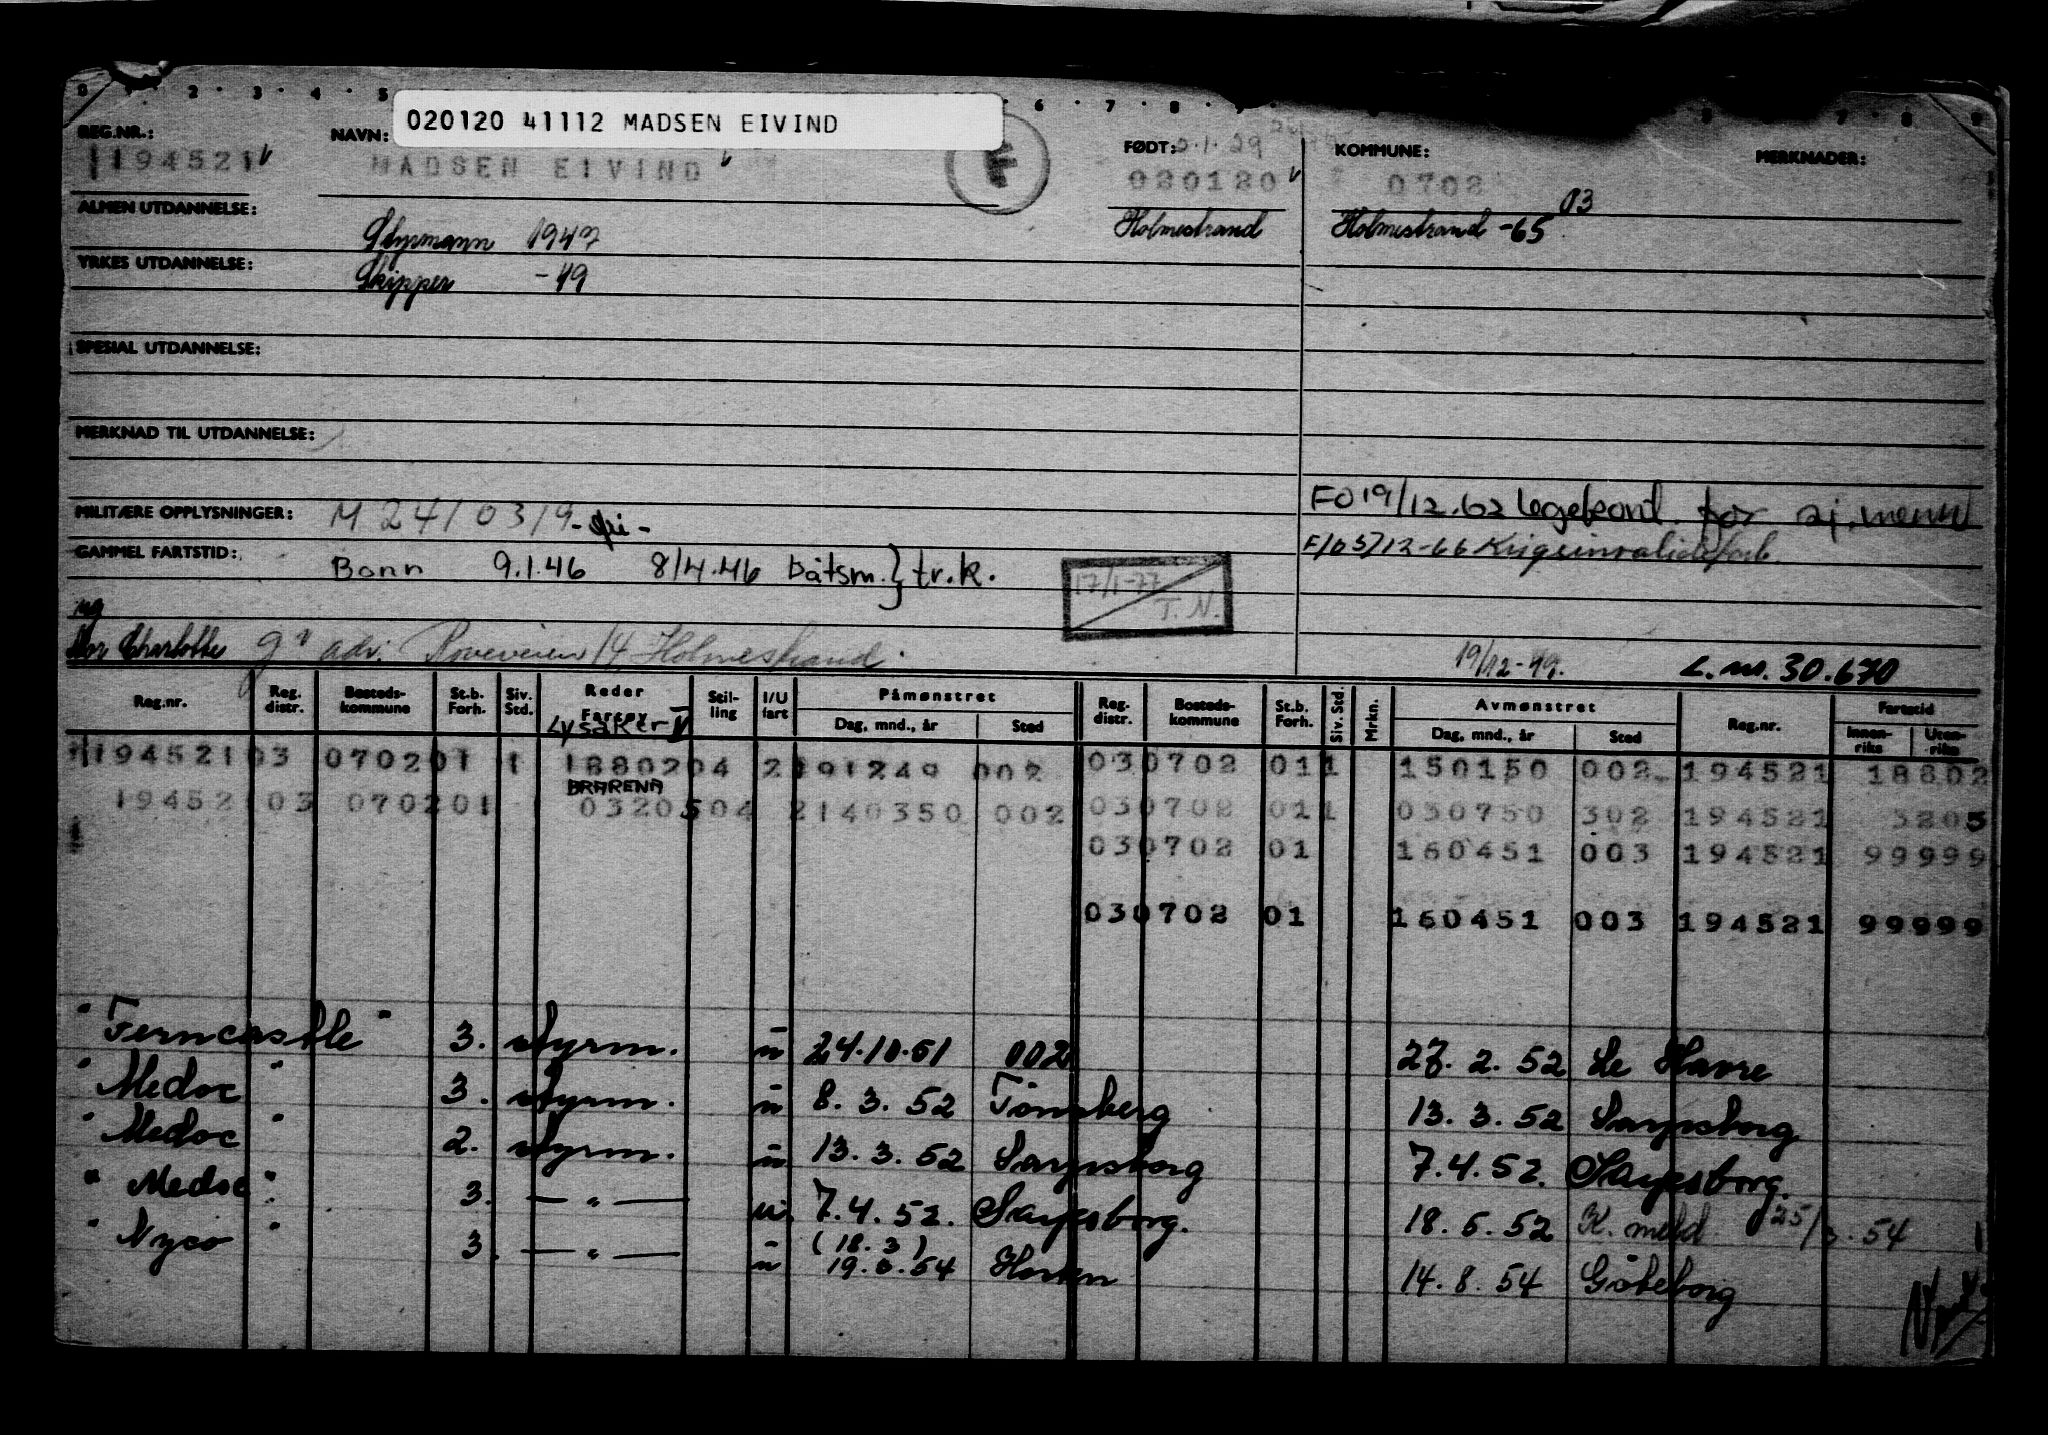 020120 41112 MADSEN EIVIND
REG.NR.: NAVN: FØDT: KOMMUNE: MERKNADER:
194521 MADSEN EIVIND F 020120 0702
03
ALMEN UTDANNELSE: Styrmann 1947 Holmestrand Holmestrand -65
YRKES UTDANNELSE: Skipper -49
SPESIAL UTDANNELSE:
MERKNAD TIL UTDANNELSE:
MILITÆRE OPPLYSNINGER: M 24/03/9 FO 19/12.62 for sj.menn
GAMMEL FARTSTID: Bonn 9.1.46 8/4.46 båtsm. } tr.k. 17/1-77 T.N.
Mor Charlotte adr. 14 Holmestrand
19/12-49. L.nr. 30.670
Reg.nr. Reg. distr. Bosteds-kommune St.b. Forh. Siv. Std. Reder Fartøy Stil-ling I/U fart Påmønstret Dag, mnd., år Sted Reg. distr. Bosteds-kommune St.b. Forh. Siv. Std. Mrkn. Avmønstret Dag, mnd., år Sted Reg.nr. Fartstid Innen-riks Uten-riks
Lysaker V
194521 03 0702 01 1 18802 04 2 191249 002 03 0702 01 1 150150 002 194521 18802
BRARENA
19452 03 0702 01 03205 04 2 140350 002 03 0702 01 1 030750 302 194521 3205
03 0702 01 160451 003 194521 99999
03 0702 01 160451 003 194521 99999
"Ferncastle" 3. styrm. u 24.10.51 002 27. 2. 52 Le Havre
"Medoc" 3. styrm. u 8. 3. 52 Tønsberg 13. 3. 52 Sarpsborg
"Medoc" 2. styrm. u 13. 3. 52 Sarpsborg 7.4.52. Sarpsborg.
"Medoc" 3. — " — u. 7.4.52. Sarpsborg. 18.5.52 K. meld 25/3.54
"Nyco" 3. — " — u (18.3) 19.3.54 Horten 14.8.54 Göteborg